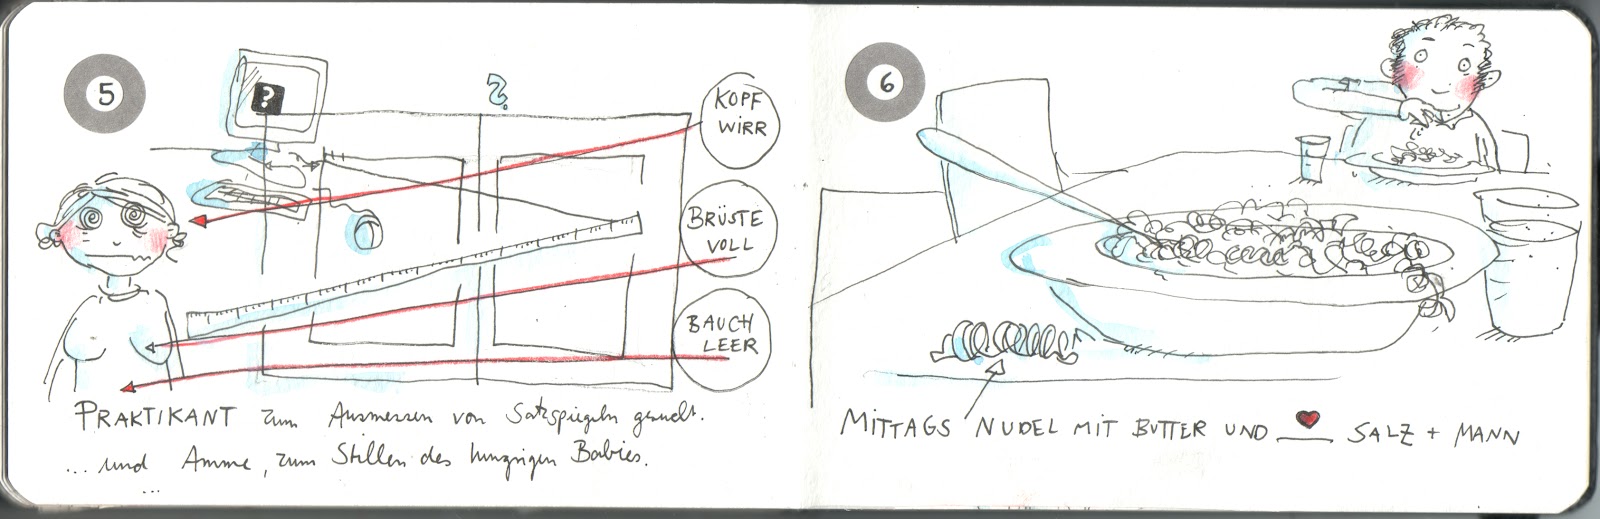 5
?
?
KOPF
WIRR
BRÜSTE
VOLL
BAUCH
LEER
PRAKTIKANT zum Ausmessen von Satzspiegeln gesucht.
... und Amme, zum Stillen des hungrigen Babies.
...
6
MITTAGS NUDEL MIT BUTTER UND ___ SALZ + MANN